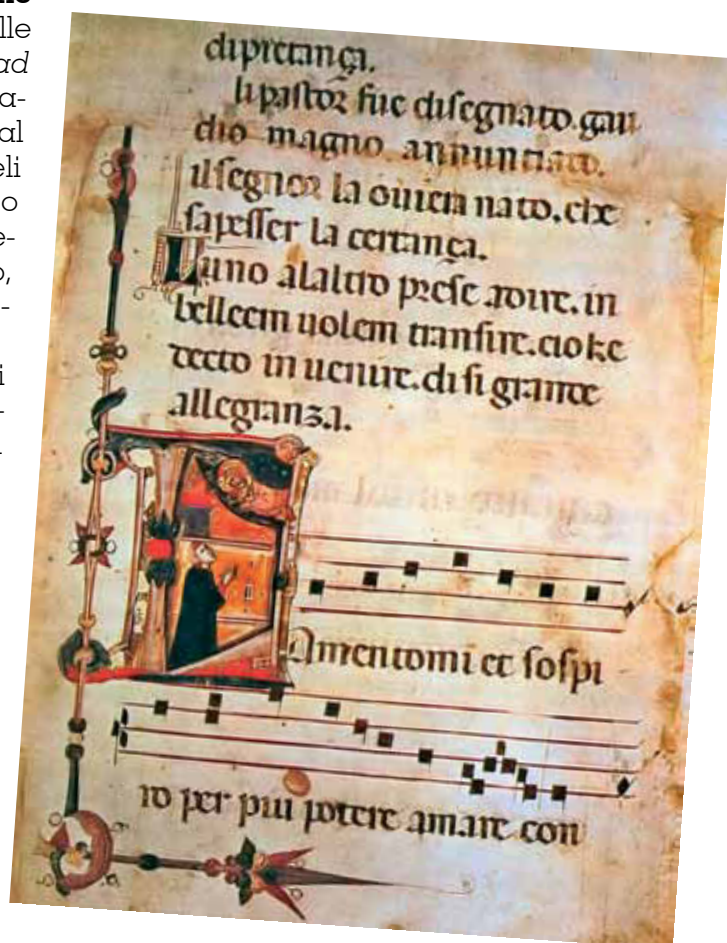 lle
ad
a-
al
eli
o
e-
o,
-
i
-
dipretança.
li pastor fuc disegnato. gau
dio magno annuntiato.
ilsegnor la ouiera nato. che
sapesser la certança.
Luno alaltro prese adire. in
belleem uolem transire. cioke
decto in uenire. di si grande
allegranza.
Lamentomi et sospi
ro per piu potere amare con